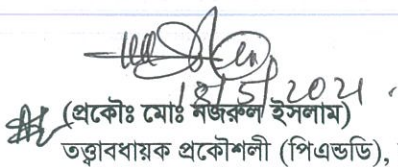 18/5/2021.
(প্রকৌঃ মোঃ নজরুল ইসলাম)
তত্ত্বাবধায়ক প্রকৌশলী (পিএন্ডডি),